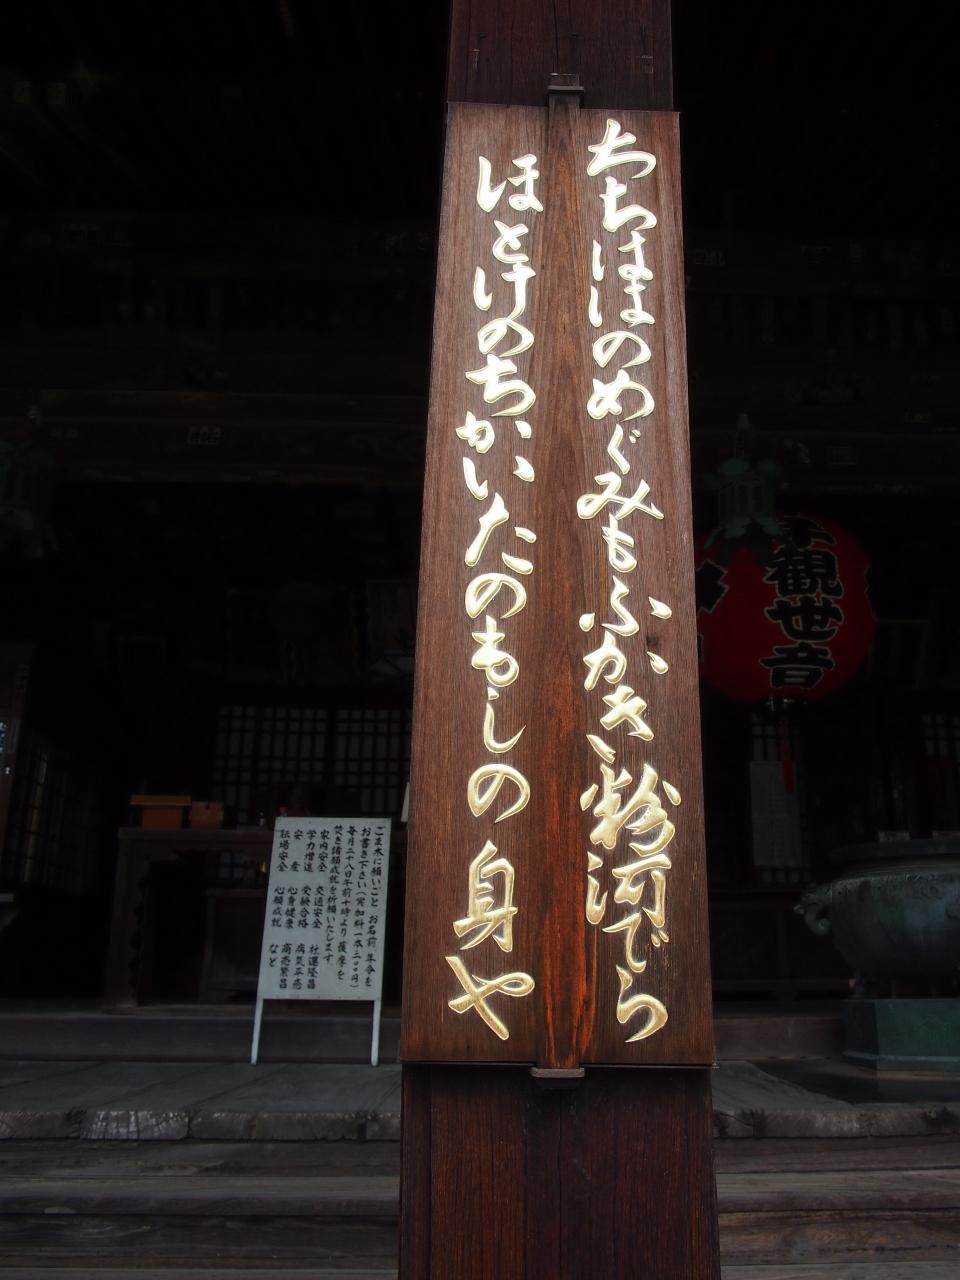 ちちははのめぐみもふかき粉河でら
ほとけのちかいたのもしの身や
ごま木に願いごと お名前、年令を
お書き下さい(冥加料一本二〇〇円)
毎月二十八日午前十時より護摩を
焚き諸願成就を祈願いたします。
家内安全 交通安全 社運隆昌
学力増進 受験合格 病気平癒
安産 心身健康 商売繁昌
職場安全 心願成就 など
観世音